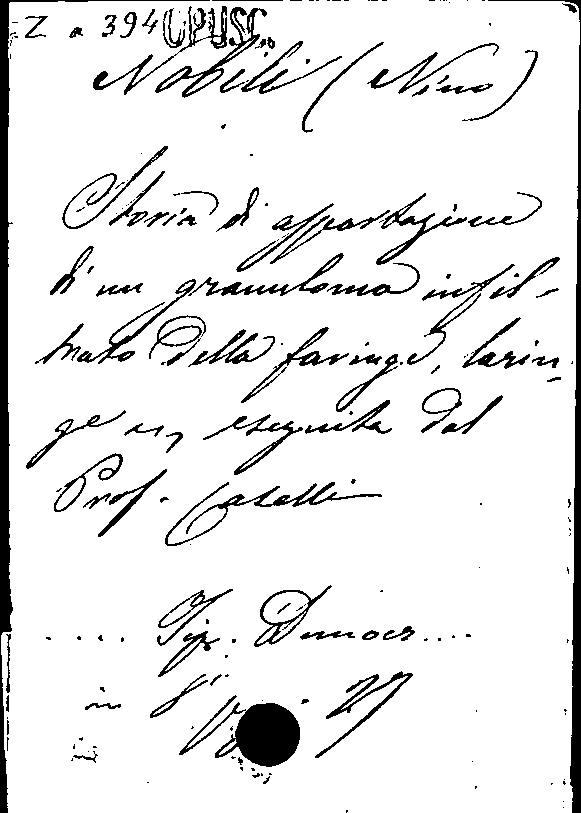 Z a 394 OPUSC.
Nobili (Nino)
Storia di asportazione
di un granuloma infil-
trato della faringe, larin-
ge eseguita dal
Prof. Caselli
.... Tip. Democr....
in 8° 27